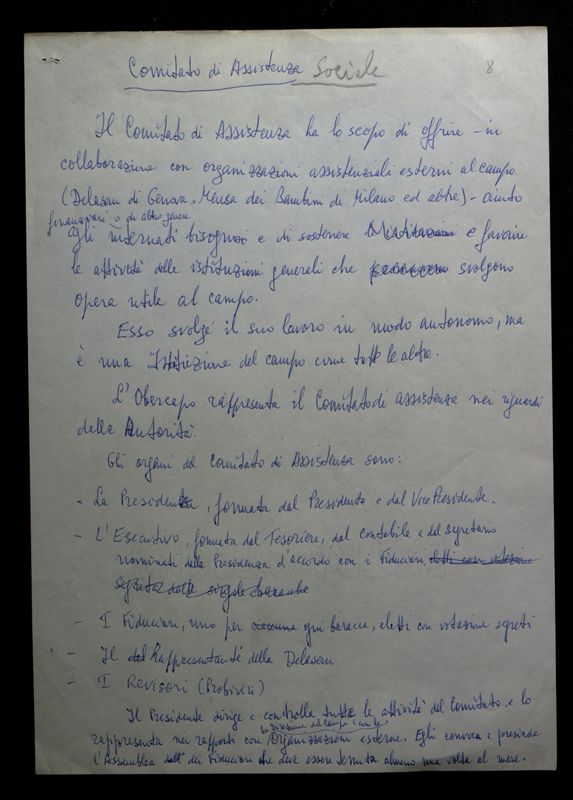 Comitato di Assistenza Sociale
8
Il Comitato di Assistenza ha lo scopo di offrire – in
collaborazione con organizzazioni assistenziali esterni al campo
(Delasem di Genova, Mensa dei Bambini di Milano ed altre) – aiuto
finanziari o di altro genere
agli internati bisognosi e di sostenere e favorire
le attività delle istituzioni generali che svolgono
opera utile al campo.
Esso svolge il suo lavoro in modo autonomo, ma
è una Istituzione del campo come tutte le altre.
L'Obercapo rappresenta il Comitato di assistenza nei riguardi
delle Autorità.
Gli organi del Comitato di Assistenza sono:
- La Presidenza, formata dal Presidente e dal Vice Presidente.
- L'Esecutivo, formata dal Tesoriere, dal contabile e dal segretario
nominati della Presidenza d'accordo con i Fiduciari, eletti con votazione
segreta dalle singole baracche
- I Fiduciari, uno per ciascuna ogni baracca, eletti con votazione segreti
- Il Rappresentante della Delasem
- I Revisori (Probiviri)
Il Presidente dirige e controlla tutte le attività del Comitato e lo
la Direzione del Campo e con le
rappresenta nei rapporti con Organizzazioni esterne. Egli convoca e presiede
l'Assemblea dei Fiduciari che deve essere tenuta almeno una volta al mese.